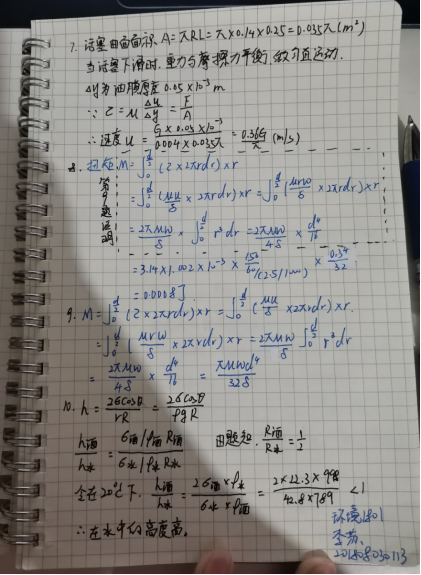 7. 活塞曲面面积 A=πRL=π×0.14×0.25=0.035π(m²)
当活塞下滑时,重力与摩擦力平衡,做匀直运动.
Δy为油膜厚度 0.05×10⁻³ m
∵ τ=μ Δu/Δy = F/A
∴ 速度 u = G×0.05×10⁻³/0.004×0.035π = 0.36G/π (m/s)
8. 扭矩M=∫₀^(d/2) (τ×2πrdr)×r
第9题证明
=∫₀^(d/2) (μu/δ ×2πrdr)×r =∫₀^(d/2) (μrω/δ ×2πrdr)×r
= 2πμω/δ × ∫₀^(d/2) r³dr = 2πμω/4δ × d⁴/16
=3.14×1.002×10⁻³× 150/60 /(2.5/1000) × 0.3⁴/32
=0.0008J
9. M=∫₀^(d/2) (τ×2πrdr)×r =∫₀^(d/2) (μu/δ ×2πrdr)×r.
=∫₀^(d/2) (μrω/δ ×2πrdr)×r = 2πμω/δ ∫₀^(d/2) r³dr
= 2πμω/4δ × d⁴/16 = πμωd⁴/32δ
10. h = 2σcosθ/rR = 2σcosθ/ρgR
h酒/h水 = σ酒/ρ酒R酒 / σ水/ρ水R水 由题知, R酒/R水 = 1/2
令在20℃下. h酒/h水 = 2σ酒×ρ水/σ水×ρ酒 = 2×22.3×998/42.8×789 <1
∴在水中的高度高。
环境1801
201808030113